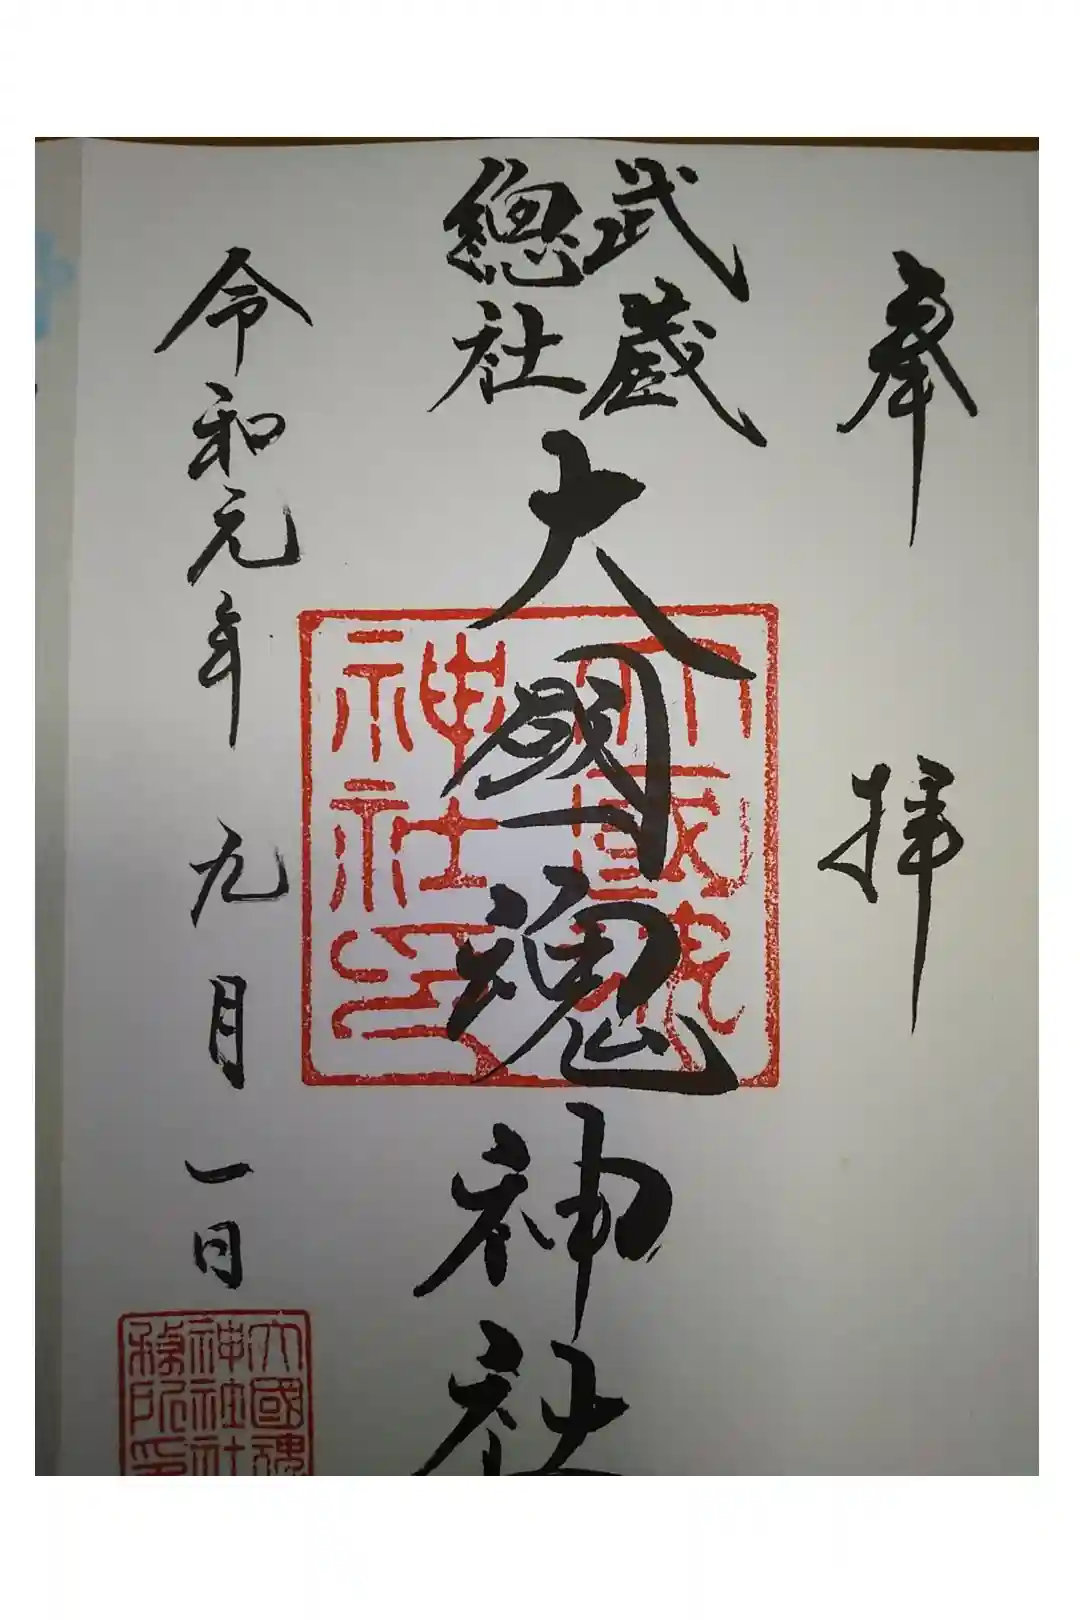 奉拝
武蔵
總社
大國魂神社
大國魂
神社印
令和元年九月一日
大國魂
神社社
務所印